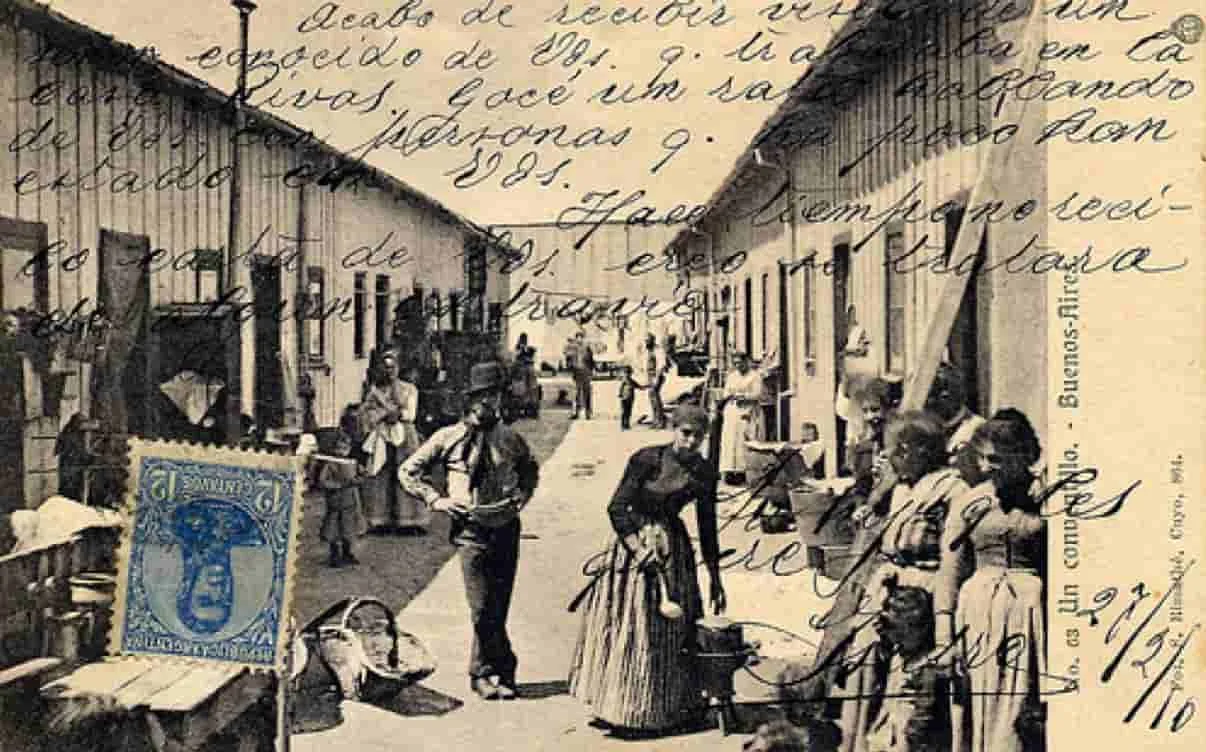 Acabo de recibir visita de un
conocido de Vds. q. trabajaba en la
casa Rivas. Gocé un rato hablando
de Vds. con personas q. ha poco han
estado con Vds.
Hace tiempo no reci-
bo carta de Vds. creo se tratara
de algun extravío
12 CENTAVOS 12
REPUBLICA ARGENTINA
No. 63 Un conventillo. - Buenos-Aires.
Cuyo, 824.
27/2/10